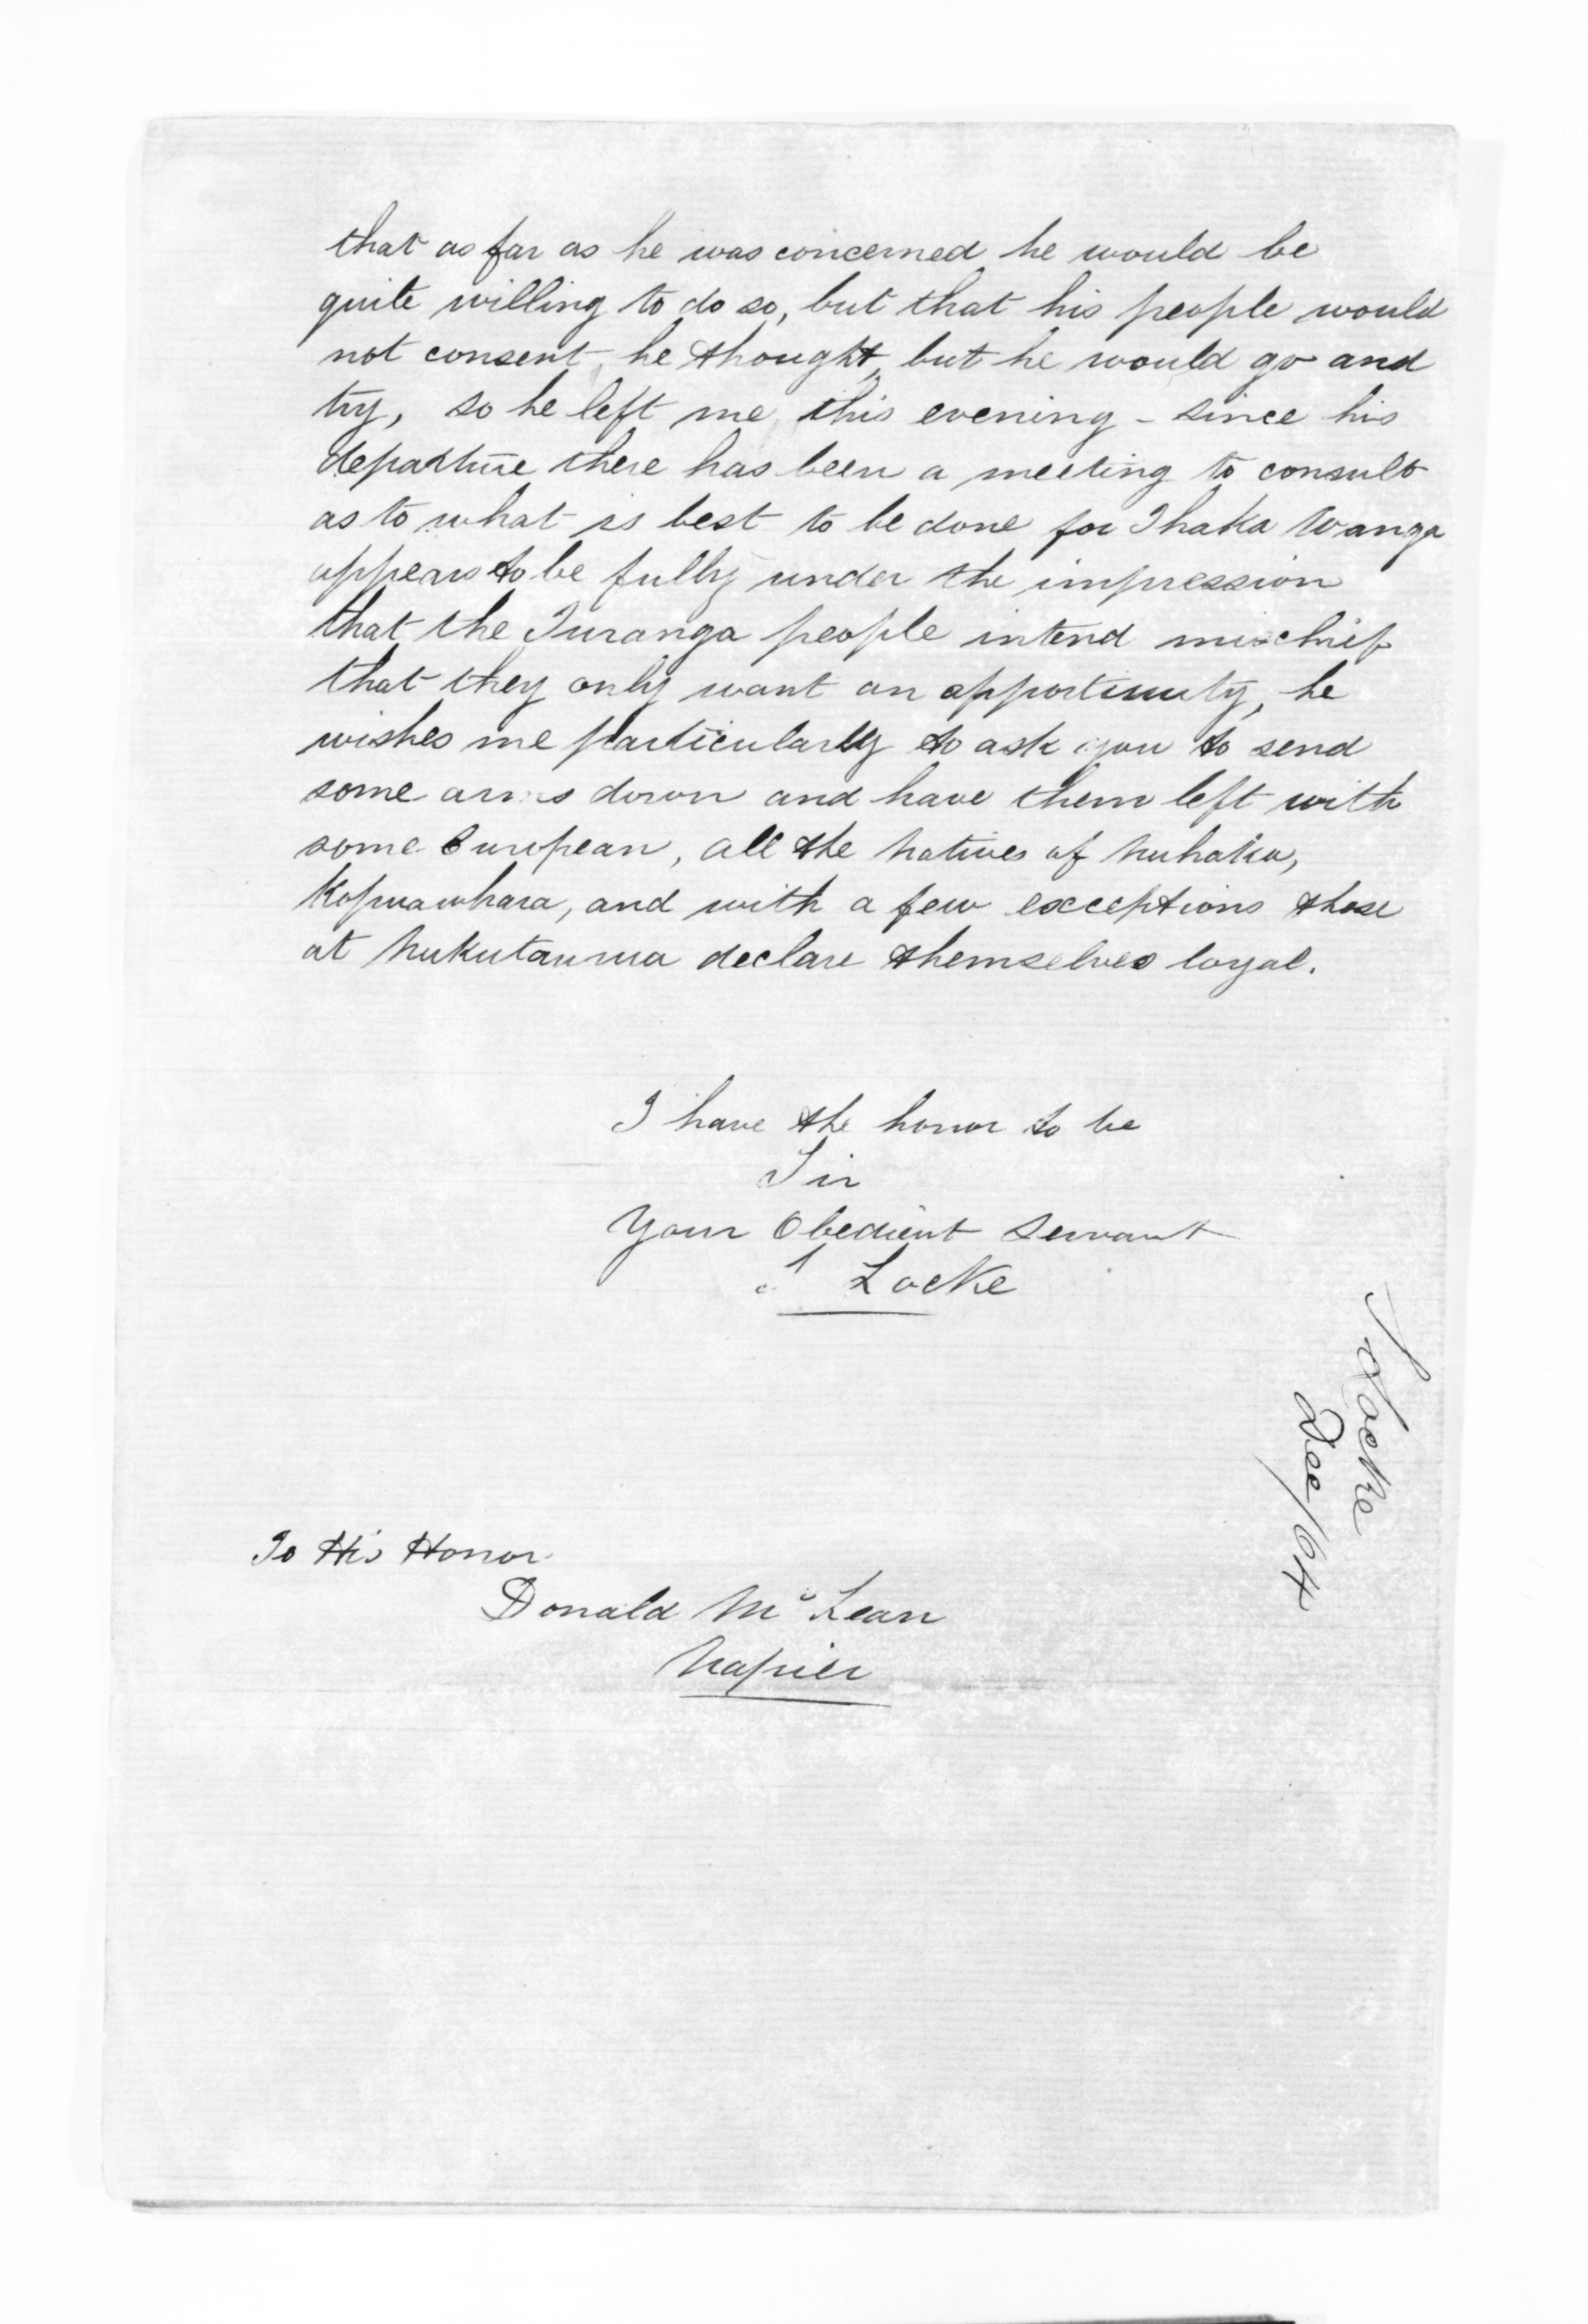 that as far as he was concerned he would be
quite willing to do so, but that his people would
not consent, he thought, but he would go and
try, so he left me this evening - since his
departure there has been a meeting to consult
as to what is best to be done for Ihaka Wanga
appears to be fully under the impression
that the Turanga people intend mischief
that they only want an opportunity, he
wishes me particularly to ask you to send
some arms down and have them left with
some European, all the natives of Nuhaka,
Kopuawhara, and with a few exceptions those
at Nukutaurua declare themselves loyal.
I have the honor to be
Sir
Your Obedient Servant
S Locke
To His Honor
Donald McLean
Napier
S Locke
Dec/64